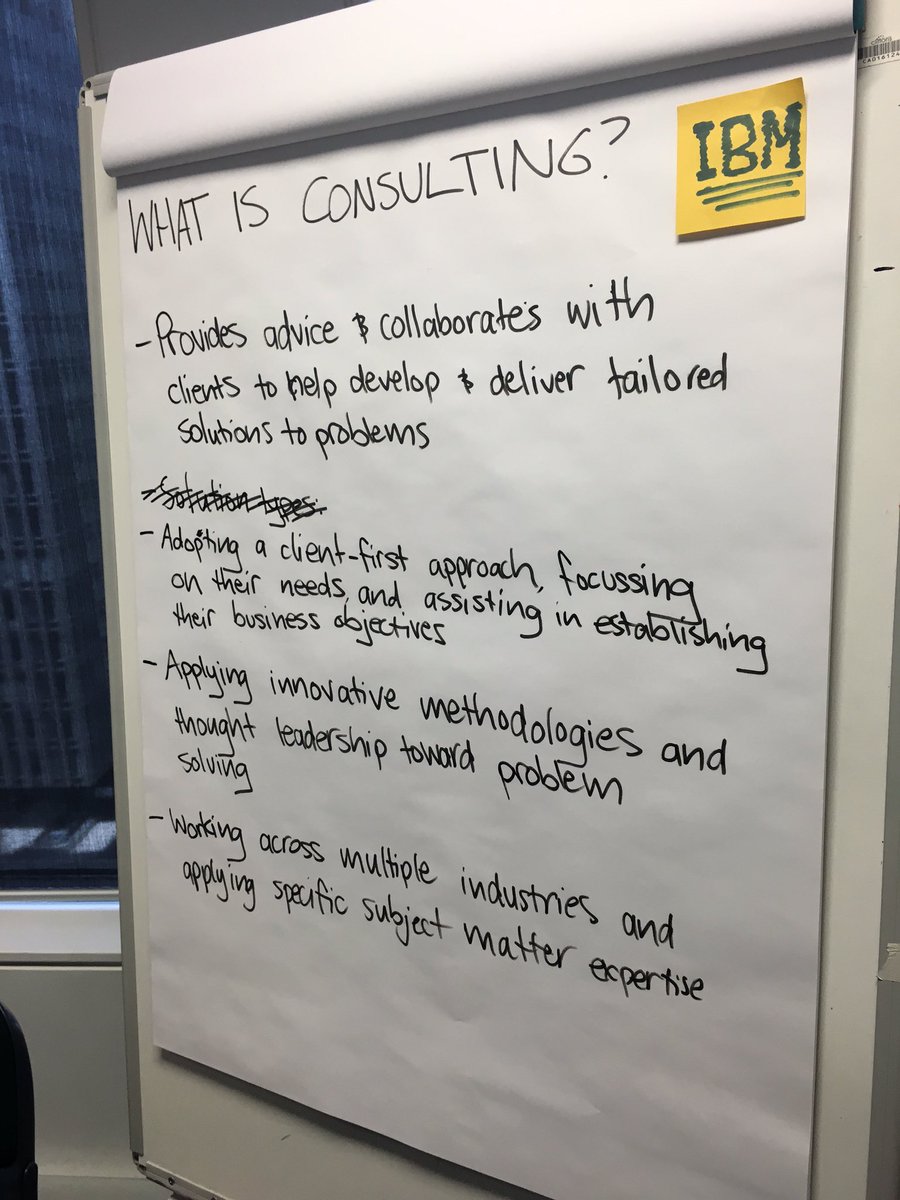 WHAT IS CONSULTING?
IBM
- Provides advice & collaborates with
clients to help develop & deliver tailored
solutions to problems
- Solution types:
- Adopting a client-first approach, focussing
on their needs, and assisting in establishing
their business objectives
- Applying innovative methodologies and
thought leadership toward problem
solving
- Working across multiple industries and
applying specific subject matter expertise